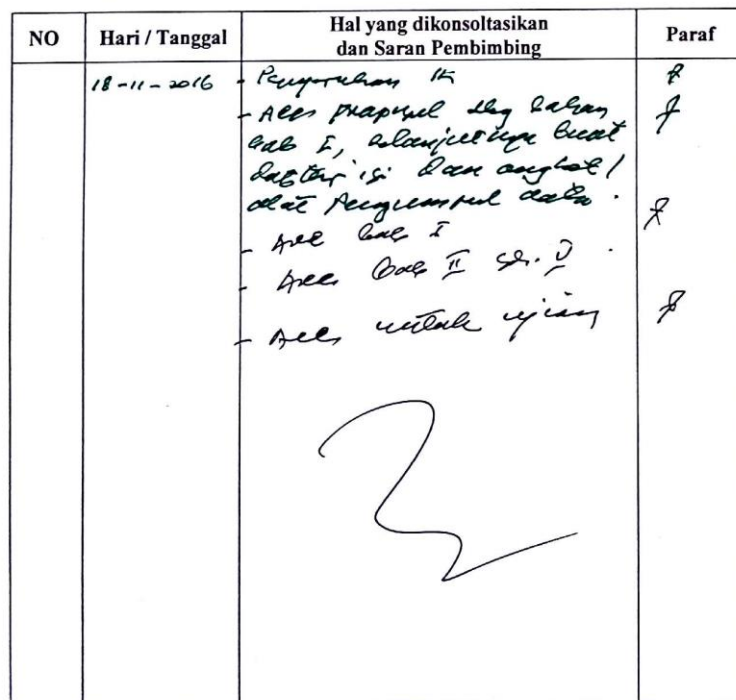 NO
Hari / Tanggal
Hal yang dikonsoltasikan
dan Saran Pembimbing
Paraf
18-11-2016
- Penyerahan
- Acc proposal sbg bahan
bab I, selanjutnya buat
daftar isi dan angket /
alat pengumpul data.
- Acc bab I
- Acc bab II s/d. V.
- Acc untuk ujian